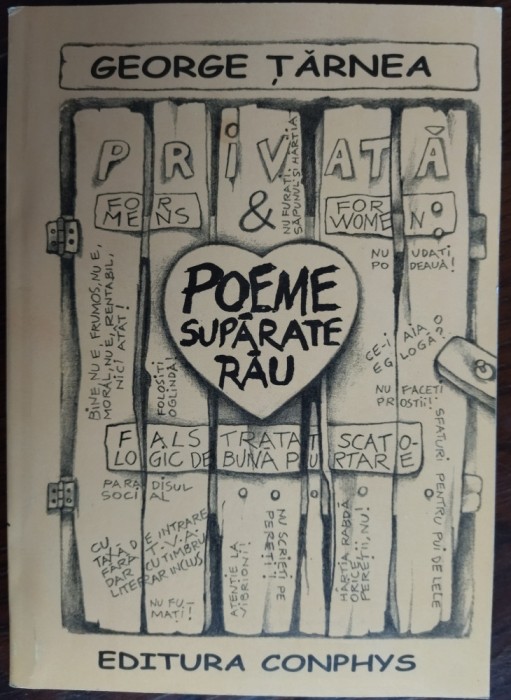 GEORGE ȚĂRNEA
PRIVATĂ
FOR
MENS
&
NU FURAȚI
SĂPUNUL ȘI HÂRTIA
FOR
WOMEN
BINE NU E, FRUMOS, NU E,
MORAL, NU E, RENTABIL,
NICI ATÂT!
NU UDAȚI
PODEAUA!
POEME
SUPĂRATE
RĂU
FOLOSIȚI
OGLINDA!
CE-I AIA O
EGLOGĂ?
NU FACEȚI
PROSTII!
FALS TRATAT SCATO-
LOGIC DE BUNĂ PURTARE
SFATURI PENTRU PUI DE LELE
PARADISUL
SOCIAL
CU TAXĂ DE INTRARE
FĂRĂ T.V.A.
DAR CU TIMBRU
LITERAR INCLUS
NU FU-
MAȚI!
ATENȚIE LA
VIBRIONI!
NU SCRIEȚI PE
PEREȚI!
HÂRTIA RABDĂ
ORICE,
PEREȚII, NU!
EDITURA CONPHYS